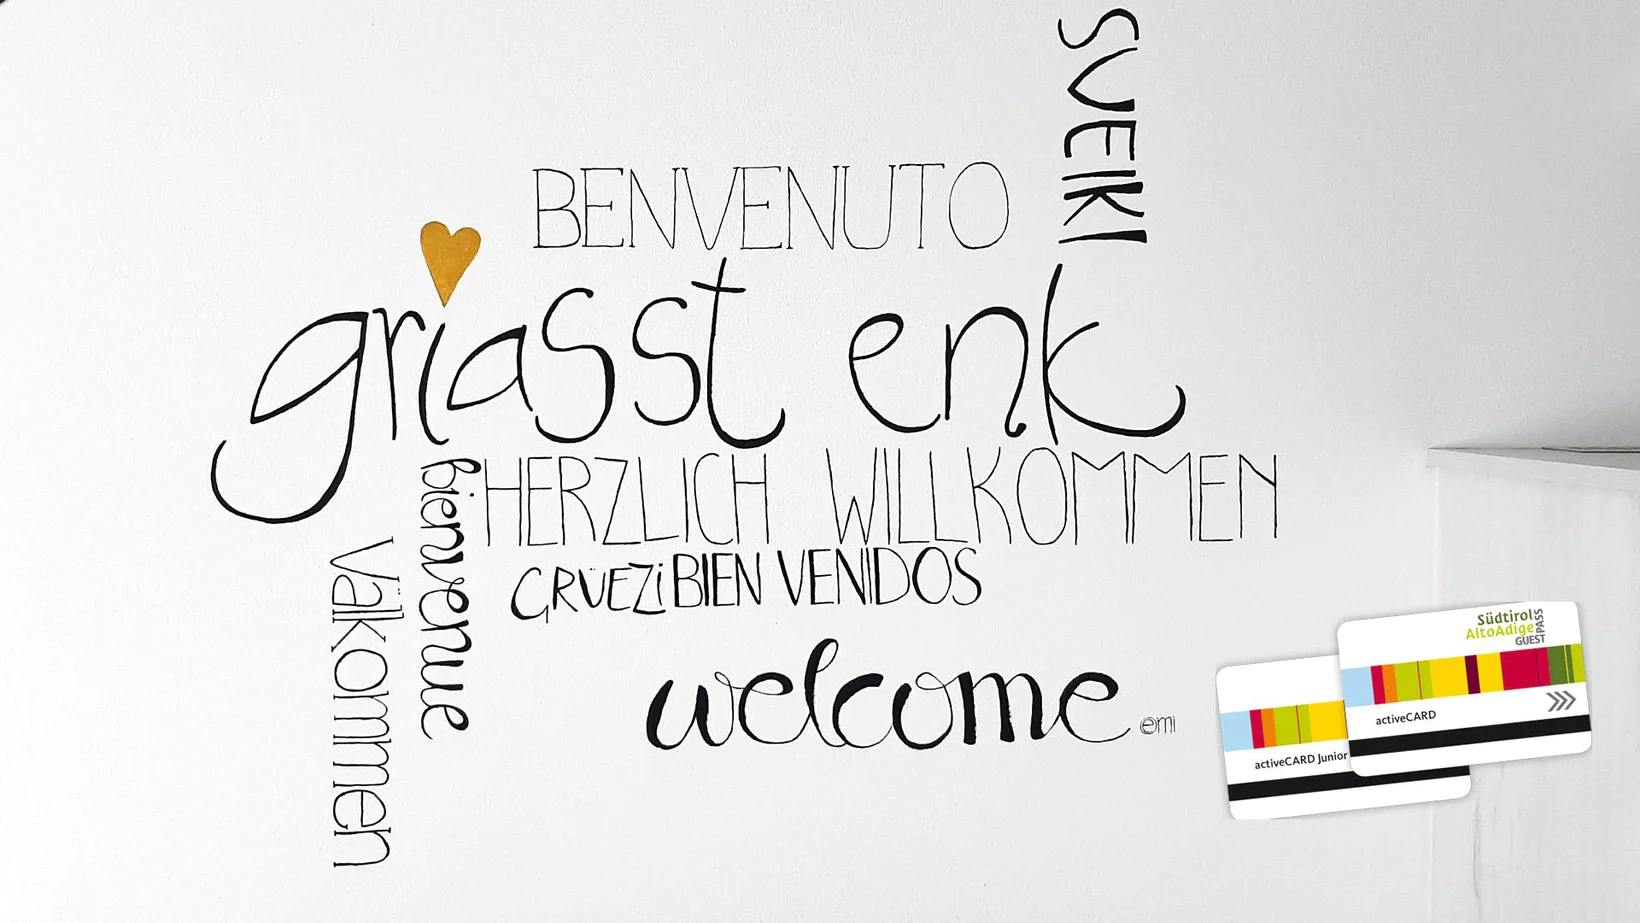 SVEIKI
BENVENUTO
griasst enk
HERZLICH WILLKOMMEN
bienvenue
välkommen
GRÜEZi BIEN VENIDOS
welcome
emi
Südtirol
AltoAdige
GUEST PASS
activeCARD
activeCARD Junior